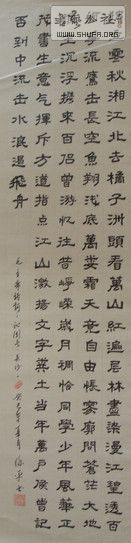 WWW.SHUFA.ORG
秋湘江北去橘子洲頭看萬山紅遍層林盡染漫江碧透百
舸爭流鷹击長空魚翔浅底萬類霜天竞自由悵寥廓問蒼茫大地
主沉浮攜來百侶曾游憶往昔崢嶸歲月稠恰同學少年風華正
茂書生意气揮斥方遒指点江山激揚文字糞土當年萬户侯曾記
否到中流击水浪遏飛舟
毛主席 沁園春 長沙